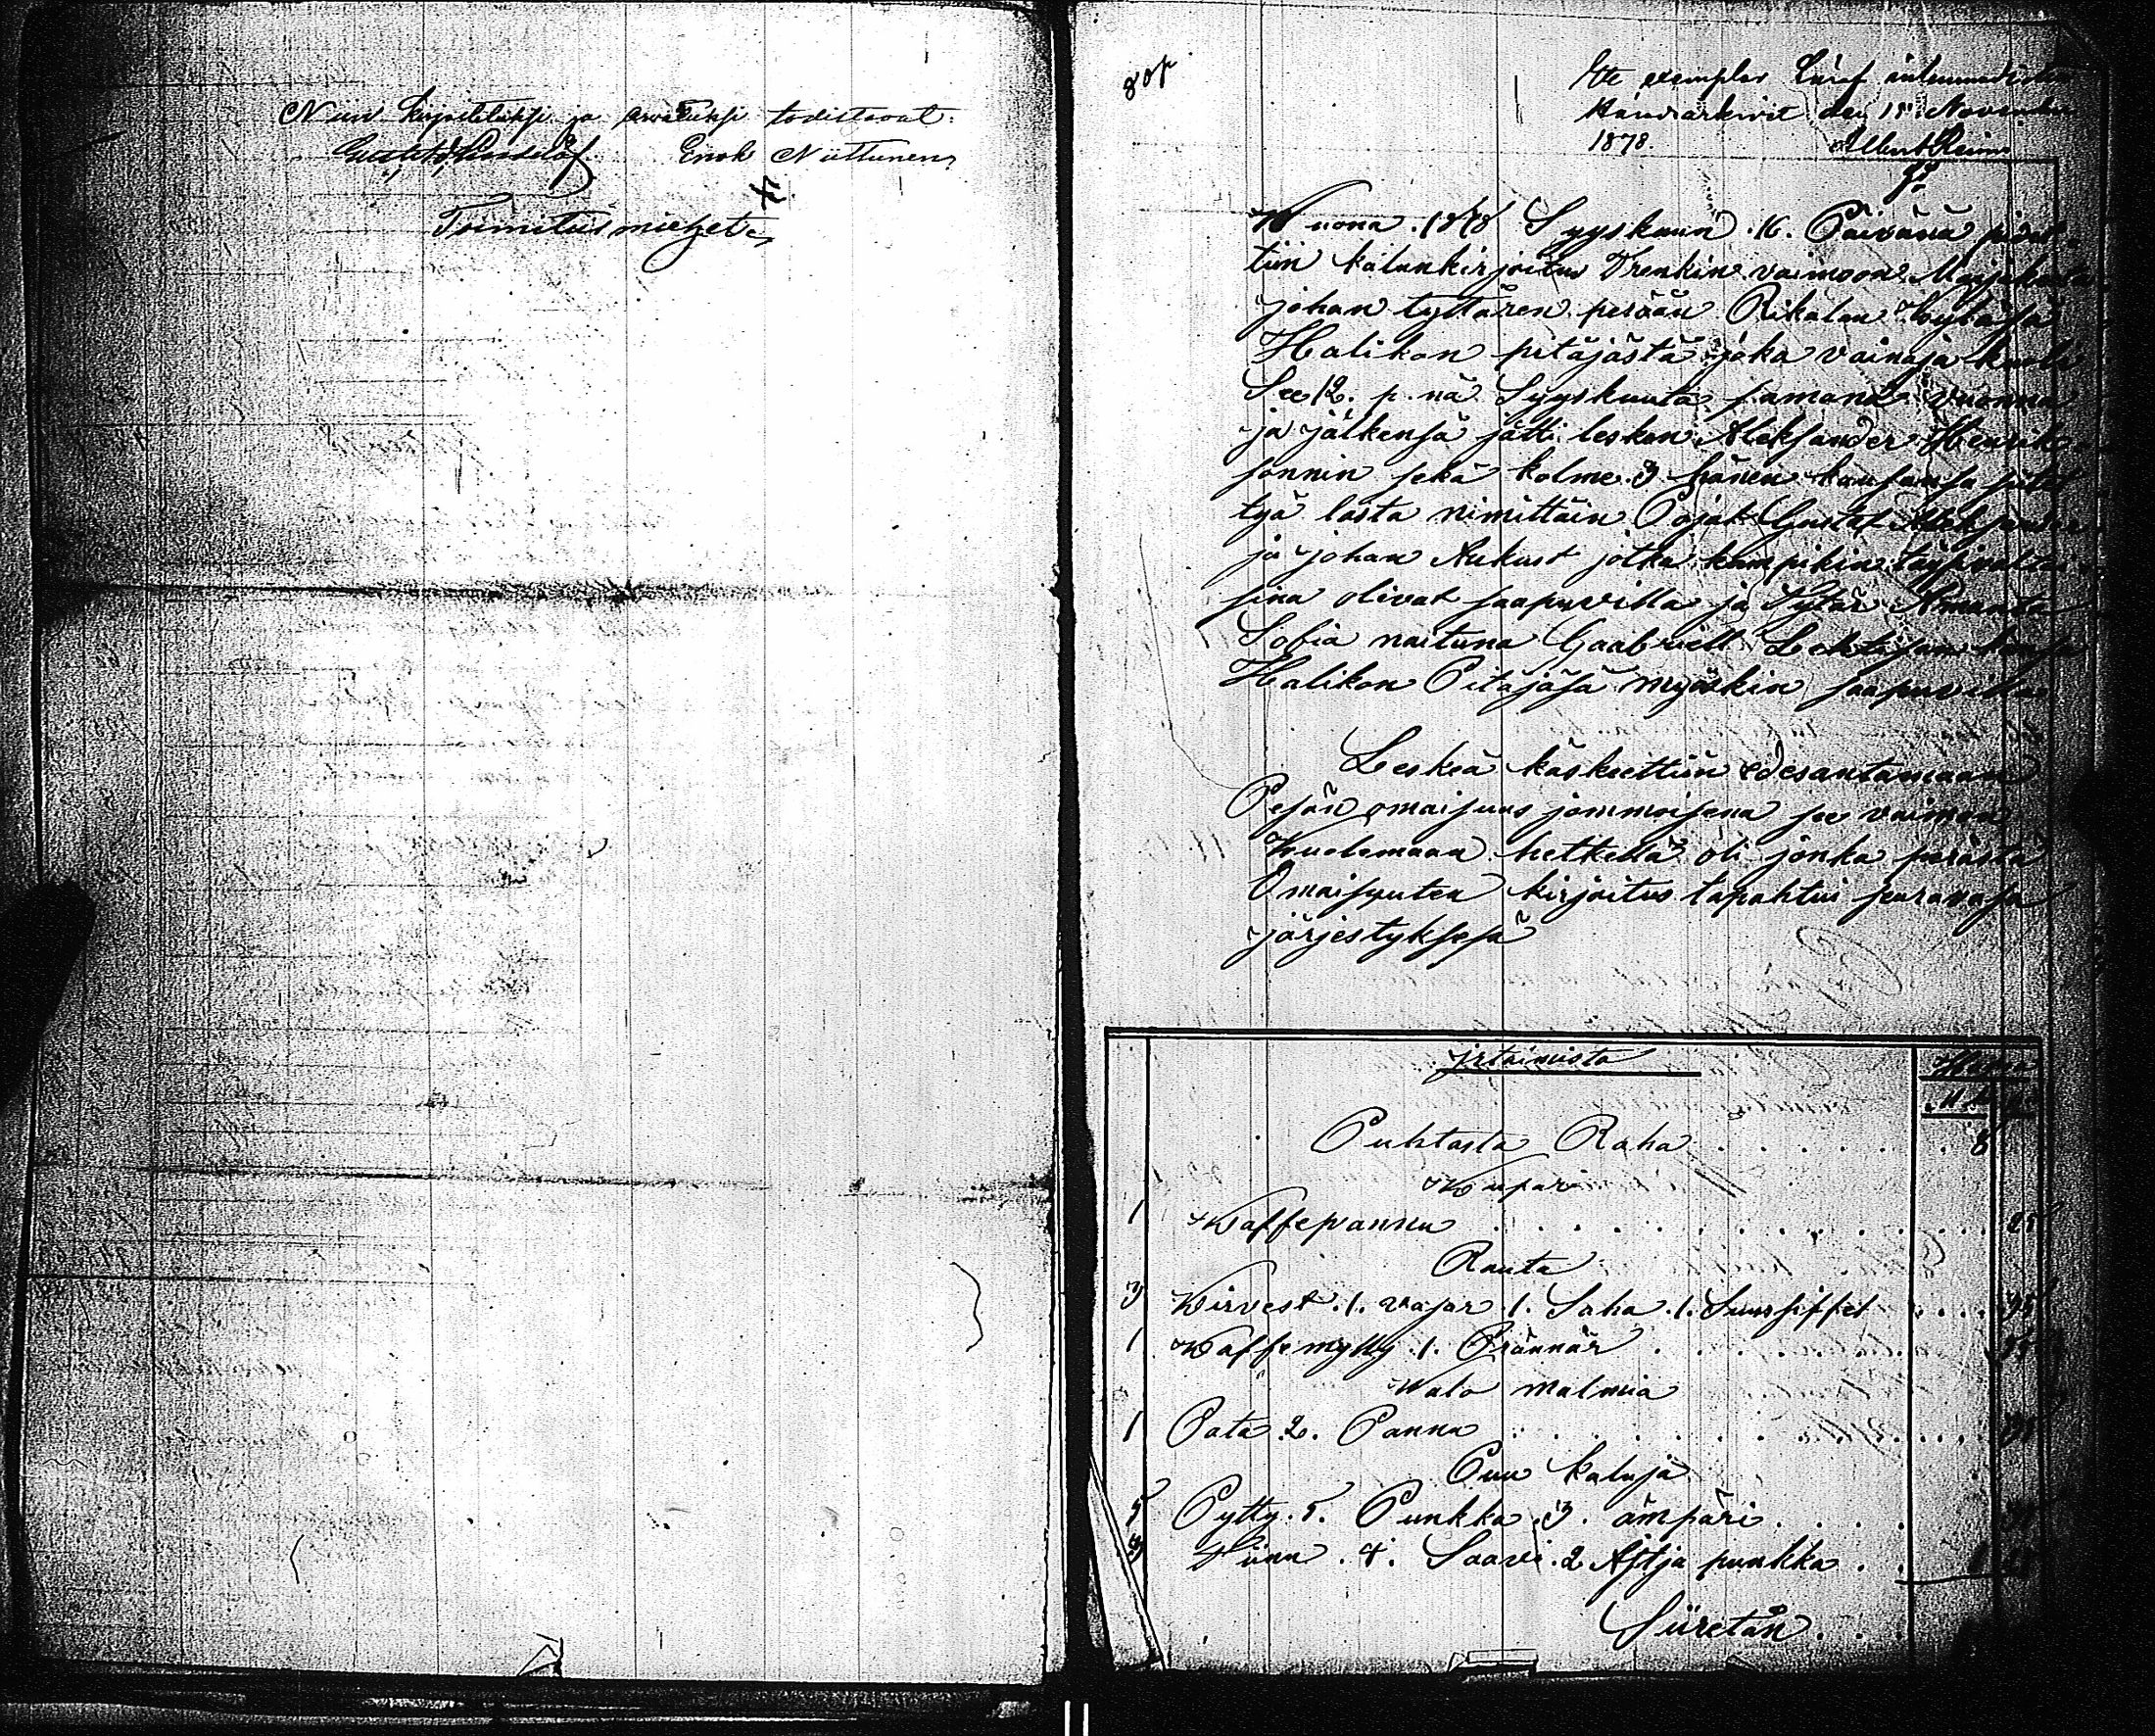 Niin kirjoitetuksi ja arvatuksi todistavat:
Enok Niittunen
Toimitus miehet
80p
Ette exemplar
den 15 November
1878.
Wuona 1878 Syyskuun 16. Päivänä pidet-
tiin kalunkirjoitus Drenkin vaimoon
johan tyttären perään Rikalan
Halikon pitäjästä joka vainaja kuoli
See 12. p. nä Syyskuuta samana vuonna
ja jälkensä jätti lesken Aleksander Henrik
sonnin sekä kolme 3 hänen kansansa
työ lasta nimittäin Pojat Gustaf Aleksander
ja johan Aukust jotka kumpikin täysivaltai
sina olivat saapuvilla ja Tytär Amanda
Sofia naituna Gaabriell kansa
Halikon Pitäjäsä myöskin saapuvilla
Leskeä käskeettiin edesantamaan
Pesän omaisuus jommoisena see vaimon
Kuolemaan hetkellä oli jonka perästä
Omaisuuten kirjoitus tapahtui seuravasa
järjestyksesä
jrtaimista
Puhtasta Raha . . . . . . . 8
Kupari
1 Kaffepannu . . . . . . . 25
Rauta
3 Kirvest. 1. vasar. 1. Saha. 1. . . . . 75
1 Kaffemylly. 1. Prännär . . . . .
Walo malmia
1 Pata. 2. Panna . . . . . . .
Puu kaluja
5 Pytty. 5. Punkka. 3. ämpäri . . . .
3 Tiinu. 4. Saavi. 2 Astja punkka . .
Siiretän . . .